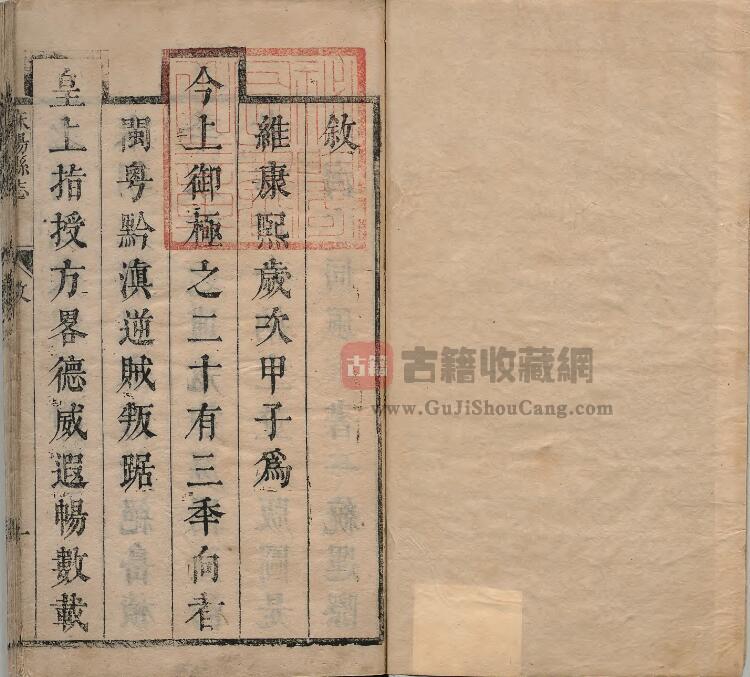 敘
維康熙歲次甲子爲
今上御極之二十有三秊向者
閩粤黔滇逆賊叛踞
皇上指授方畧德威遐暢數載
陽縣志
敘
一
古籍
古籍收藏網
www.GuJiShouCang.com